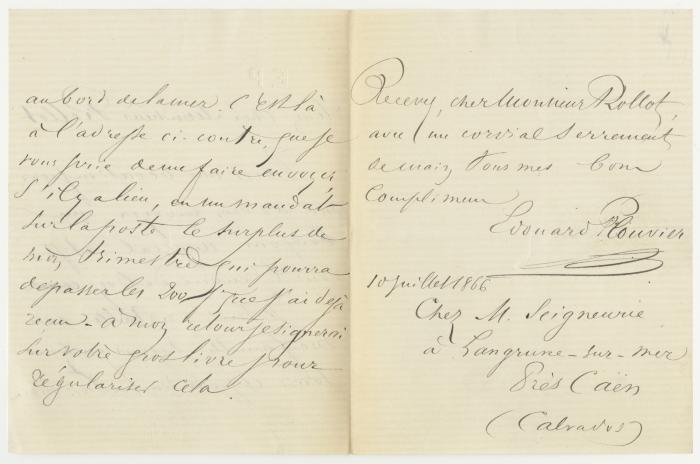 au bord de la mer. C'est là
à l'adresse ci-contre, que je
vous prie de me faire envoyer
s'il y a lieu, en un mandat
sur la poste le surplus de
mon trimestre qui pourra
dépasser les 200 f que j'ai déjà
reçu - à mon retour je signerai
sur votre gros livre pour
régulariser cela.
Recevez, cher Monsieur Rollot,
avec un cordial serrement
de main tous mes bons
compliments
Edouard Plouvier
10 juillet 1866
Chez M. Seigneurie
à Langrune-sur-mer
Près Caën
(Calvados)